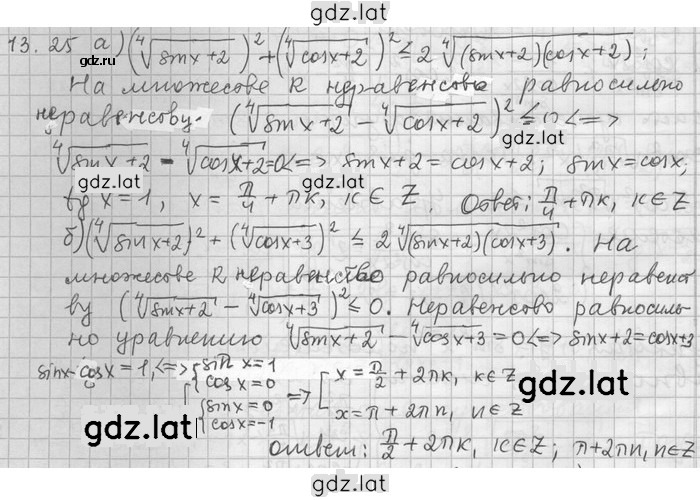 gdz.lat
13.25 а) (∜(sinx+2))² + (∜(cosx+2))² ≤ 2 ∜((sinx+2)(cosx+2));
На множестве R неравенство равносильно
gdz.lat
неравенству: (∜(sinx+2) - ∜(cosx+2))² ≤ 0 <=>
gdz.lat
∜(sinx+2) - ∜(cosx+2) = 0 <=> sinx+2 = cosx+2; sinx = cosx;
gdz.lat
tg x = 1, x = π/4 + πk, k ∈ Z. Ответ: π/4 + πk, k ∈ Z
gdz.lat
б) (∜(sinx+2))² + (∜(cosx+3))² ≤ 2 ∜((sinx+2)(cosx+3)). На
gdz.lat
множестве R неравенство равносильно неравенст
ву (∜(sinx+2) - ∜(cosx+3))² ≤ 0. Неравенство равносиль-
gdz.lat
но уравнению ∜(sinx+2) - ∜(cosx+3) = 0 <=> sinx+2 = cosx+3
sinx - cosx = 1, <=> [ { sin x = 1 cos x = 0 { sinx = 0 cosx = -1 => [ x = π/2 + 2πk, k ∈ Z x = π + 2πn, n ∈ Z
gdz.lat
gdz.lat
ответ: π/2 + 2πk, k ∈ Z; π + 2πn, n ∈ Z
gdz.lat